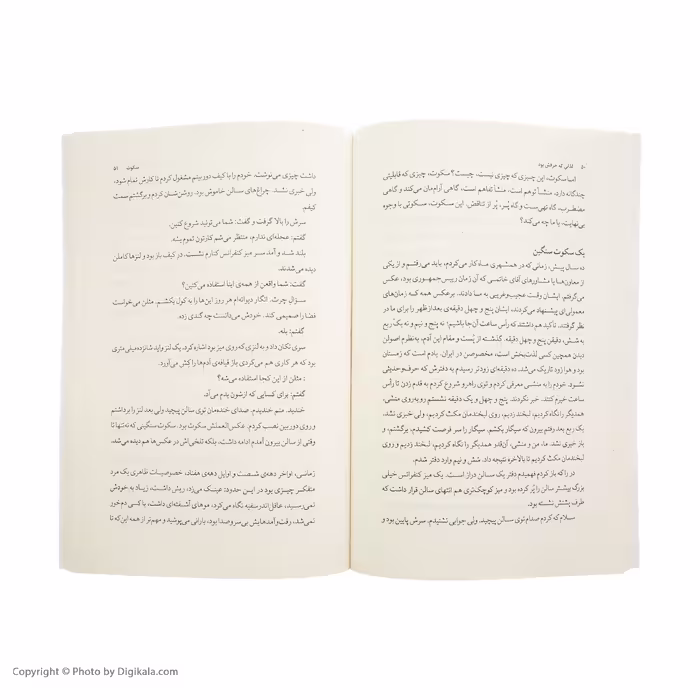 ۵۰ لذاتی که حرفش بود
اما سکوت، این چیزی که چیزی نیست، چیست؟ سکوت، چیزی که قابلیتی
چندگانه دارد. منشأ توهم است، منشأ تفاهم است، گاهی آرام‌مان می‌کند و گاهی
مضطرب، گاه تهی‌ست و گاه پُر، پُر از تناقض. این سکوت، سکوتی با وجوه
بی‌نهایت، با ما چه می‌کند؟
یک سکوت سنگین
ده سال پیش، زمانی که در همشهری ماه کار می‌کردم، باید می‌رفتم و از یکی
از معاون‌ها یا مشاورهای آقای خاتمی که آن زمان رییس‌جمهوری بود، عکس
می‌گرفتم. ایشان وقت عجیب‌وغریبی به ما دادند. برعکس همه که زمان‌های
معمولی‌ای پیشنهاد می‌کردند، ایشان پنج و چهل دقیقه‌ی بعدازظهر را برای ما در
نظر گرفتند. تأکید هم داشتند که رأس ساعت آن‌جا باشیم؛ نه پنج و نیم و نه یک ربع
به شش، دقیقن پنج و چهل دقیقه. گذشته از پُست و مقام این آدم، به‌نظرم اصولن
دیدن همچین کسی لذت‌بخش است، مخصوصن در ایران. یادم است که زمستان
بود و هوا زود تاریک می‌شد. ده دقیقه‌ای زودتر رسیدم به دفترش که حرف‌وحدیثی
نشود. خودم را به منشی معرفی کردم و توی راهرو شروع کردم به قدم زدن تا رأس
ساعت خبرم کنند. خبر نکردند. پنج و چهل و یک دقیقه نشستم روبه‌روی منشی،
همدیگر را نگاه کردیم، لبخند زدیم، روی لبخندمان مکث کردیم، ولی خبری نشد.
یک ربع بعد رفتم بیرون که سیگار بکشم. سیگار را سر فرصت کشیدم، برگشتم، و
باز خبری نشد. ما، من و منشی، آن‌قدر همدیگر را نگاه کردیم، لبخند زدیم و روی
لبخندمان مکث کردیم تا بالاخره نتیجه داد. شش و نیم وارد دفتر شدم.
در را که باز کردم فهمیدم دفتر یک سالن دراز است. یک میز کنفرانس خیلی
بزرگ بیشتر سالن را پُر کرده بود و میز کوچک‌تری هم انتهای سالن قرار داشت که
طرف پشتش نشسته بود.
سلام که کردم صدام توی سالن پیچید. ولی جوابی نشنیدم. سرش پایین بود و
سکوت ۵۱
داشت چیزی می‌نوشت. خودم را با کیف دوربینم مشغول کردم تا کارش تمام شود.
ولی خبری نشد. چراغ‌های سالن خاموش بود. روشن‌شان کردم و برگشتم سمت
کیفم.
سرش را بالا گرفت و گفت: شما می‌تونید شروع کنین.
گفتم: عجله‌ای ندارم، منتظر می‌شم کارتون تموم بشه.
بلند شد و آمد سر میز کنفرانس کنارم نشست. در کیف باز بود و لنزها کاملن
دیده می‌شدند.
گفت: شما واقعن از همه‌ی اینا استفاده می‌کنین؟
سؤالِ چرت. انگار دیوانه‌ام هر روز این‌ها را به کول بکشم. مثلن می‌خواست
فضا را صمیمی کند. خودش می‌دانست چه گندی زده.
گفتم: بله.
سری تکان داد و به لنزی که روی میز بود اشاره کرد. یک لنز واید شانزده میلی‌متری
بود که هر کاری هم می‌کردی باز قیافه‌ی آدم‌ها را کش می‌آورد.
: مثلن از این کجا استفاده می‌شه؟
گفتم: برای کسایی که ازشون بدم می‌آد.
خندید. منم خندیدم. صدای خنده‌مان توی سالن پیچید ولی بعد لنز را برداشتم
و روی دوربین نصب کردم. عکس‌العملش سکوت بود. سکوت سنگینی که نه‌تنها تا
وقتی از سالن بیرون آمدم ادامه داشت، بلکه تلخی‌اش در عکس‌ها هم دیده می‌شد.
زمانی، اواخر دهه‌ی شصت و اوایل دهه‌ی هفتاد، خصوصیات ظاهری یک مرد
متفکر چیزی بود در این حدود: عینک می‌زد، ریش داشت، زیاد به خودش
نمی‌رسید، عاقل‌اندرسفیه نگاه می‌کرد، موهای آشفته‌ای داشت، با کسی دم‌خور
نمی‌شد، رفت‌وآمدهایش بی‌سروصدا بود، بارانی می‌پوشید و مهم‌تر از همه این‌که تا
Copyright © Photo by Digikala.com